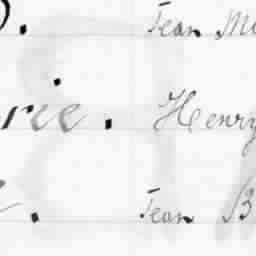 Jean
rie. Henry
Jean B